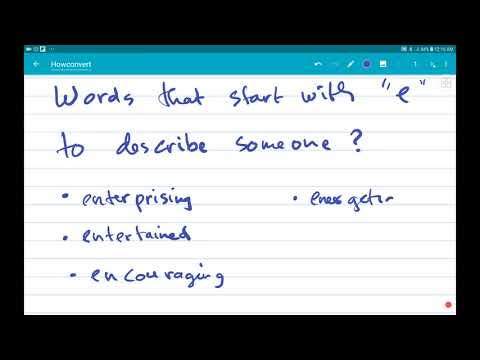 12:16 AM
Howconvert
Words that start with "e"
to describe someone?
• enterprising
• energetic
• entertained
• encouraging